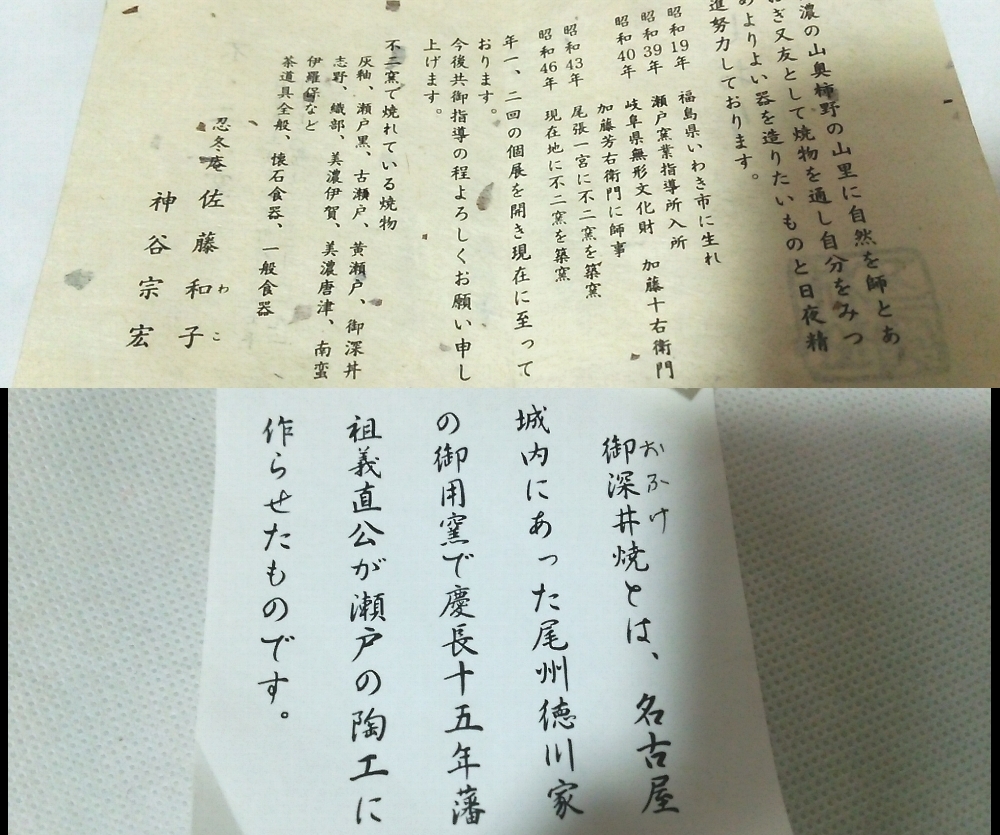 濃の山奥柿野の山里に自然を師とあ
ぎ又友として焼物を通し自分をみつ
めよりよい器を造りたいものと日夜精
進努力しております。
昭和19年 福島県いわき市に生れ
昭和39年 瀬戸窯業指導所入所
昭和40年 岐阜県無形文化財 加藤十右衛門
加藤芳右衛門に師事
昭和43年 尾張一宮に不二窯を築窯
昭和46年 現在地に不二窯を築窯
年一、二回の個展を開き現在に至って
おります。
今後共御指導の程よろしくお願い申し
上げます。
不二窯で焼れている焼物
灰釉、瀬戸黒、古瀬戸、黄瀬戸、御深井
志野、織部、美濃伊賀、美濃唐津、南蛮
伊羅保など
茶道具全般、懐石食器、一般食器
忍冬庵 佐藤和子
わこ
神谷宗宏
御深井焼とは、名古屋
おふけ
城内にあった尾州徳川家
の御用窯で慶長十五年藩
祖義直公が瀬戸の陶工に
作らせたものです。